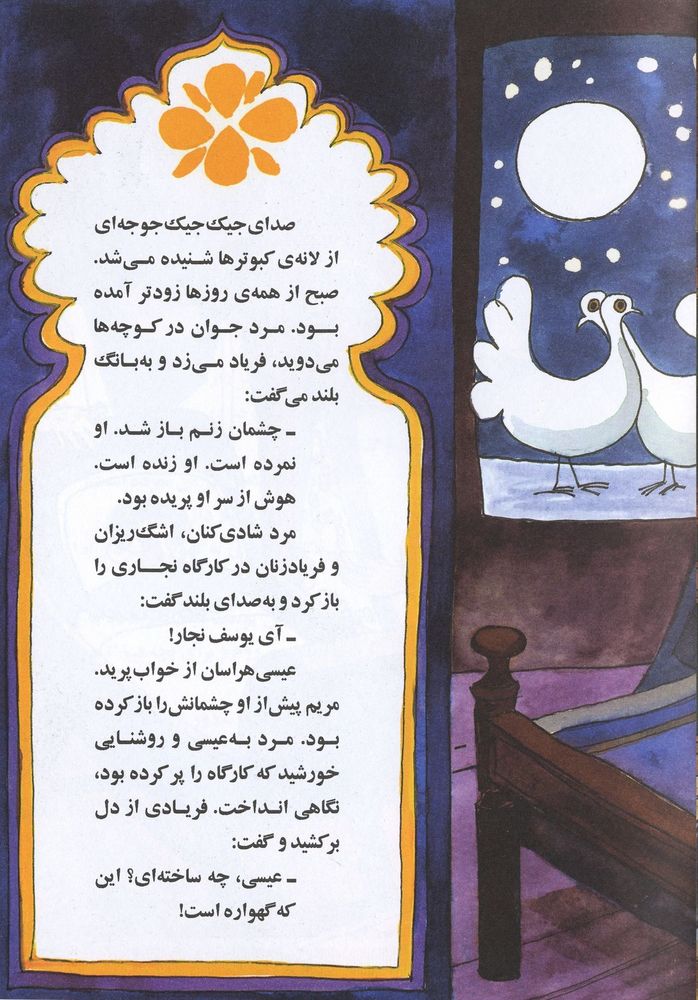 صدای جیک‌جیک جوجه‌ای
از لانه‌ی کبوترها شنیده می‌شد.
صبح از همه‌ی روزها زودتر آمده
بود. مرد جوان در کوچه‌ها
می‌دوید، فریاد می‌زد و به‌بانگ
بلند می‌گفت:
ـ چشمان زنم باز شد. او
نمرده است. او زنده است.
هوش از سر او پریده بود.
مرد شادی‌کنان، اشگ‌ریزان
و فریادزنان در کارگاه نجاری را
باز کرد و به‌صدای بلند گفت:
ـ آی یوسف نجار!
عیسی هراسان از خواب پرید.
مریم پیش از او چشمانش را باز کرده
بود. مرد به‌عیسی و روشنایی
خورشید که کارگاه را پر کرده بود،
نگاهی انداخت. فریادی از دل
برکشید و گفت:
ـ عیسی، چه ساخته‌ای؟ این
که گهواره است!